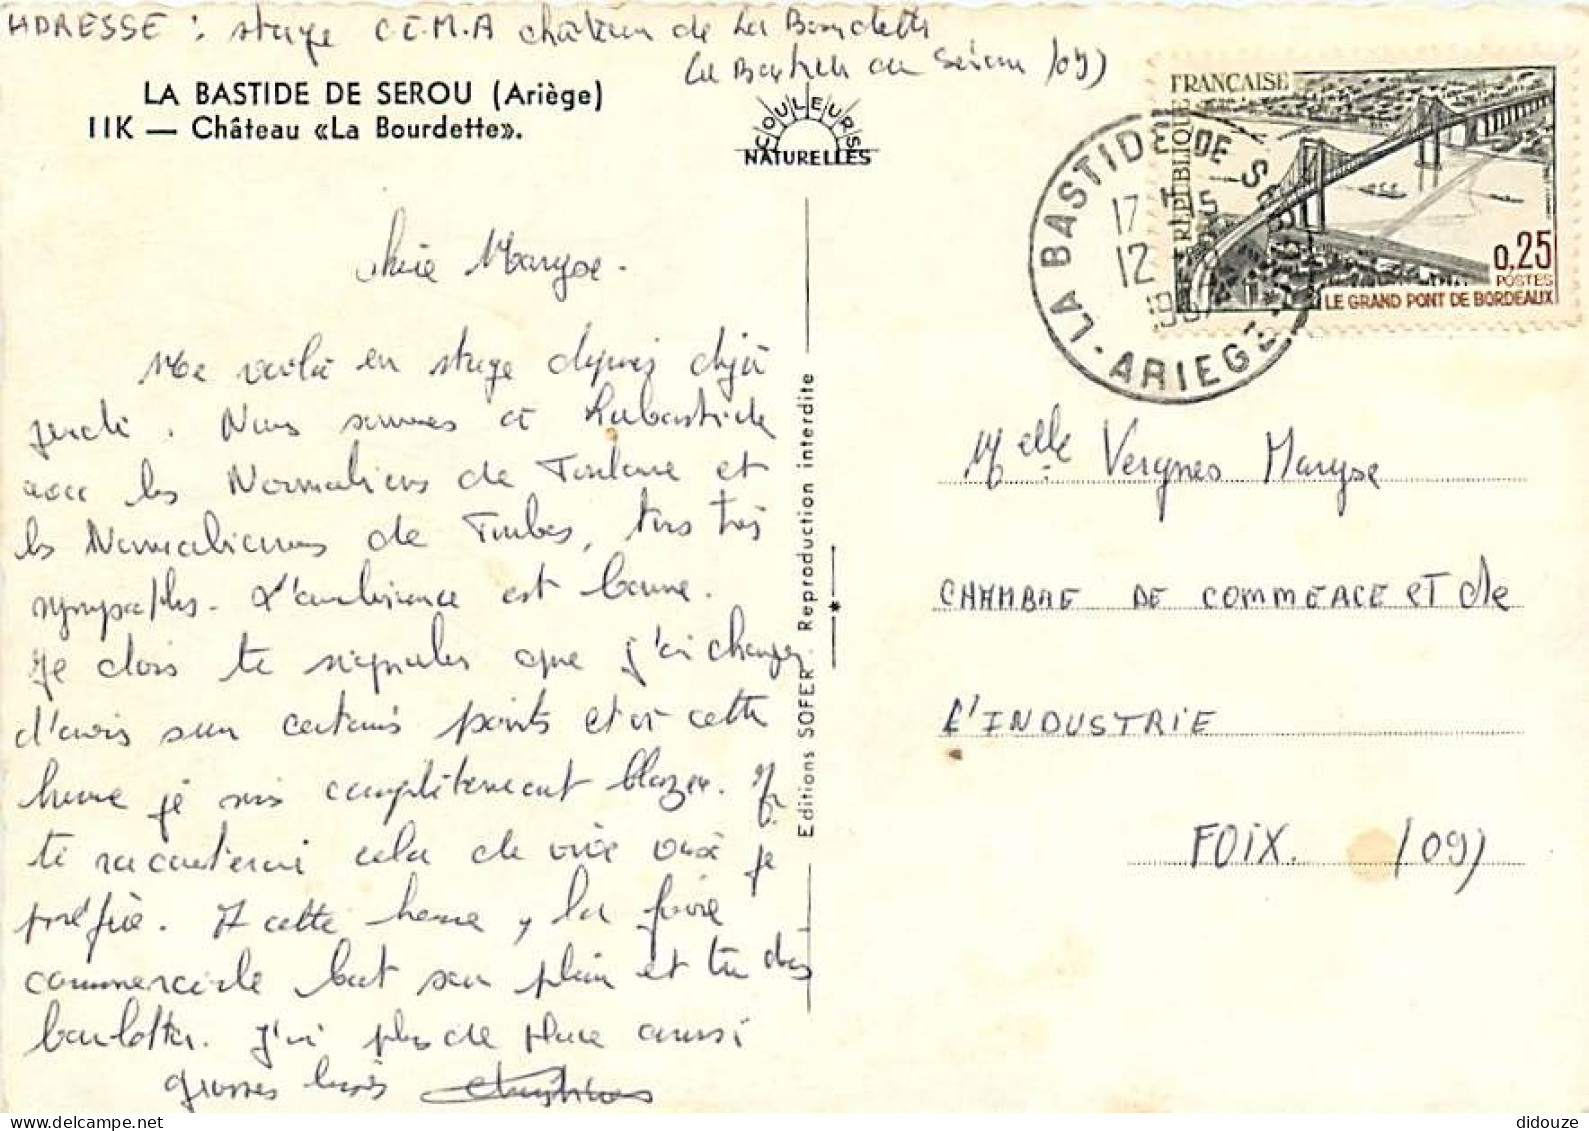 ADRESSE : stage C.E.M.A château de La Bourdette
La Bastide de Sérou (09)
LA BASTIDE DE SEROU (Ariège)
IIK — Château «La Bourdette».
COULEURS
NATURELLES
RÉPUBLIQUE FRANÇAISE
0,25
POSTES
LE GRAND PONT DE BORDEAUX
LA BASTIDE DE SEROU
17 H 15
12
196
ARIEGE
chère Maryse.
Me voilà en stage depuis déjà
jeudi. Nous sommes à Labastide
avec les Normaliens de Toulouse et
les Normaliennes de Tarbes, tous très
sympathes. L'ambiance est bonne.
Je dois te signaler que j'ai changer
d'avis sur certains points et à cette
heure je suis complètement blazer. Je
te raconterai cela de vive voix je
préfère. A cette heure, la foire
commerciale bat son plein et tu dois
boulotter. J'ai plus de place aussi
grosses bises
Editions SOFER. Reproduction interdite
Melle Vergnes Maryse
CHAMBRE DE COMMERCE ET de
L'INDUSTRIE
FOIX. (09)
didouze